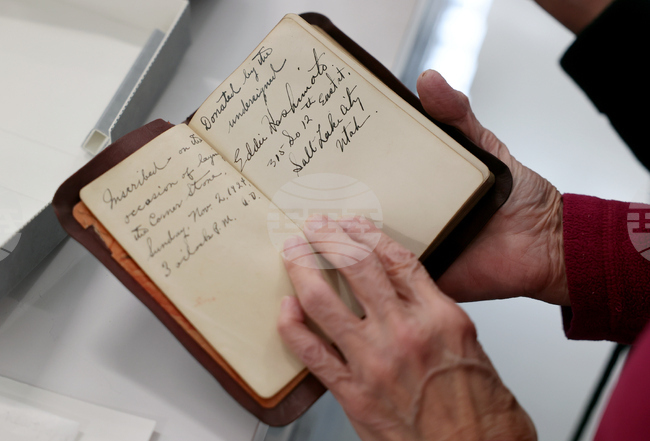 Inscribed on this
occasion of laying
the Corner Stone.
Sunday. Nov. 2. 1924.
3 o'clock P.M. A.D.
Donated by the
undersigned
Eddie Hashimoto.
315 So 12th East st.
Salt Lake City
Utah.